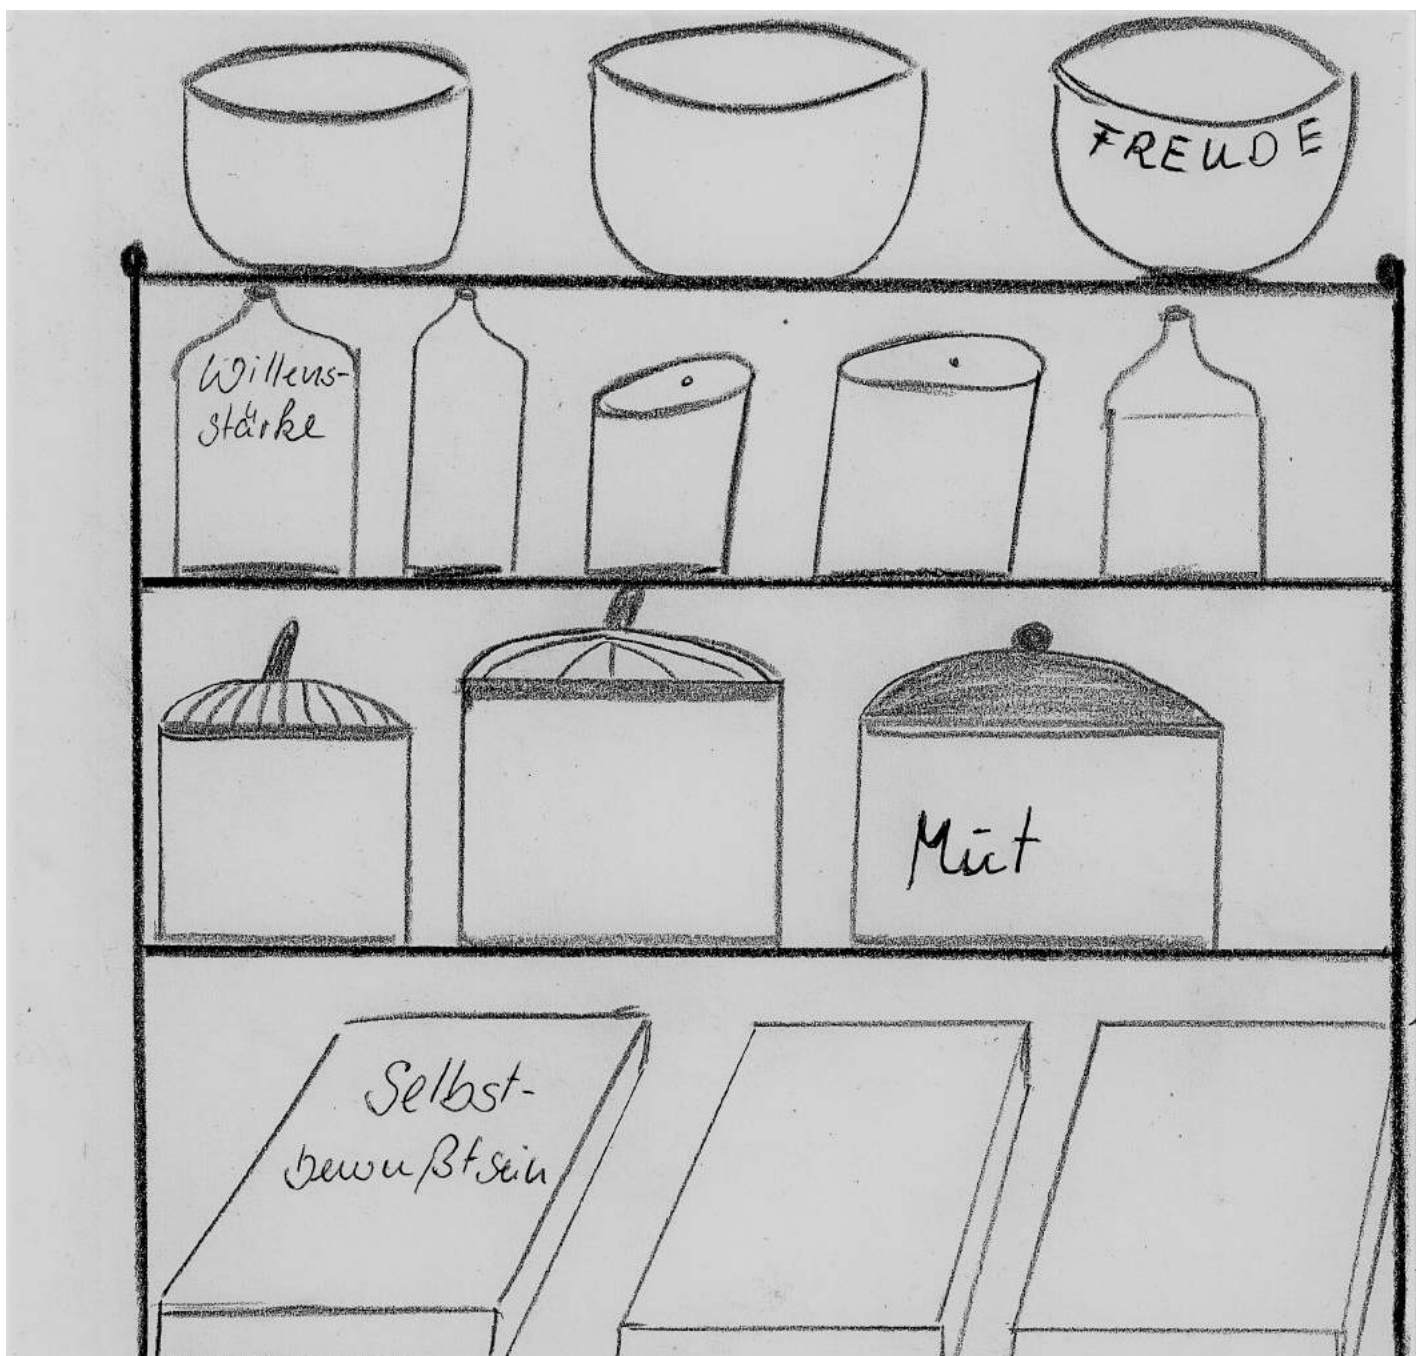 FREUDE
Willens-
stärke
Mut
Selbst-
bewußtsein